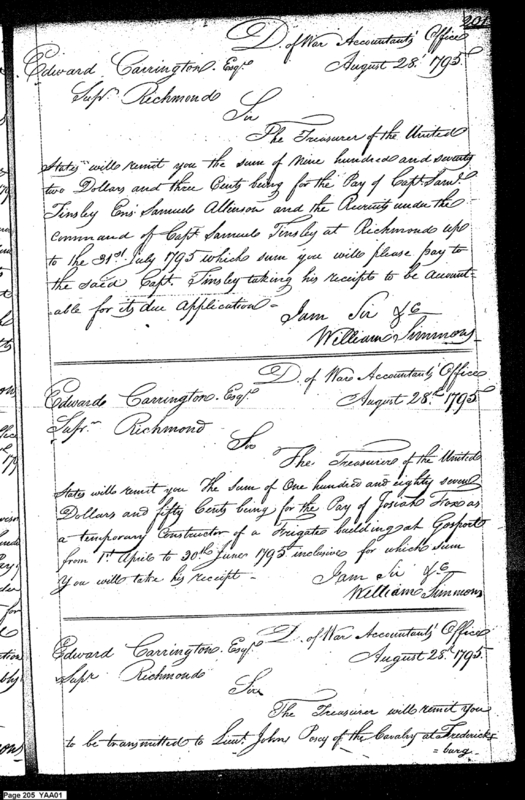 201
D. of War Accountants Office
Edward Carrington Esqr. August 28th 1795
Supr. Richmond
Sir
The Treasurer of the United
States will remit you the sum of Nine hundred and seventy
two Dollars and three Cents being for the Pay of Capt. Saml.
Tinsley Ens Samuel Allenson and the Recruits under the
command of Capt. Samuel Tinsley at Richmond up
to the 31st July 1795 which sum you will please pay to
the said Capt. Tinsley taking his receipts to be Account-
able for its due Application -
I am Sir &c
William Simmons
D. of War Accountants Office
Edward Carrington Esqr. August 28th 1795
Supr. Richmond
Sir
The Treasurer of the United
States will remit you The sum of One hundred and eighty seven
Dollars and fifty Cents being for the Pay of Josiah Fox as
a temporary Constructor of a Frigate building at Gosport
from 1st April to 30th June 1795 inclusive for which sum
You will take his receipt -
I am Sir &c
William Simmons
D. of War Accountants Office
Edward Carrington Esqr. August 28th 1795
Supr Richmond
Sir
The Treasurer will remit You
to be transmitted to Lieut. John Posey of the Cavalry at Fredericks
= burg -
Page 205 YAA01